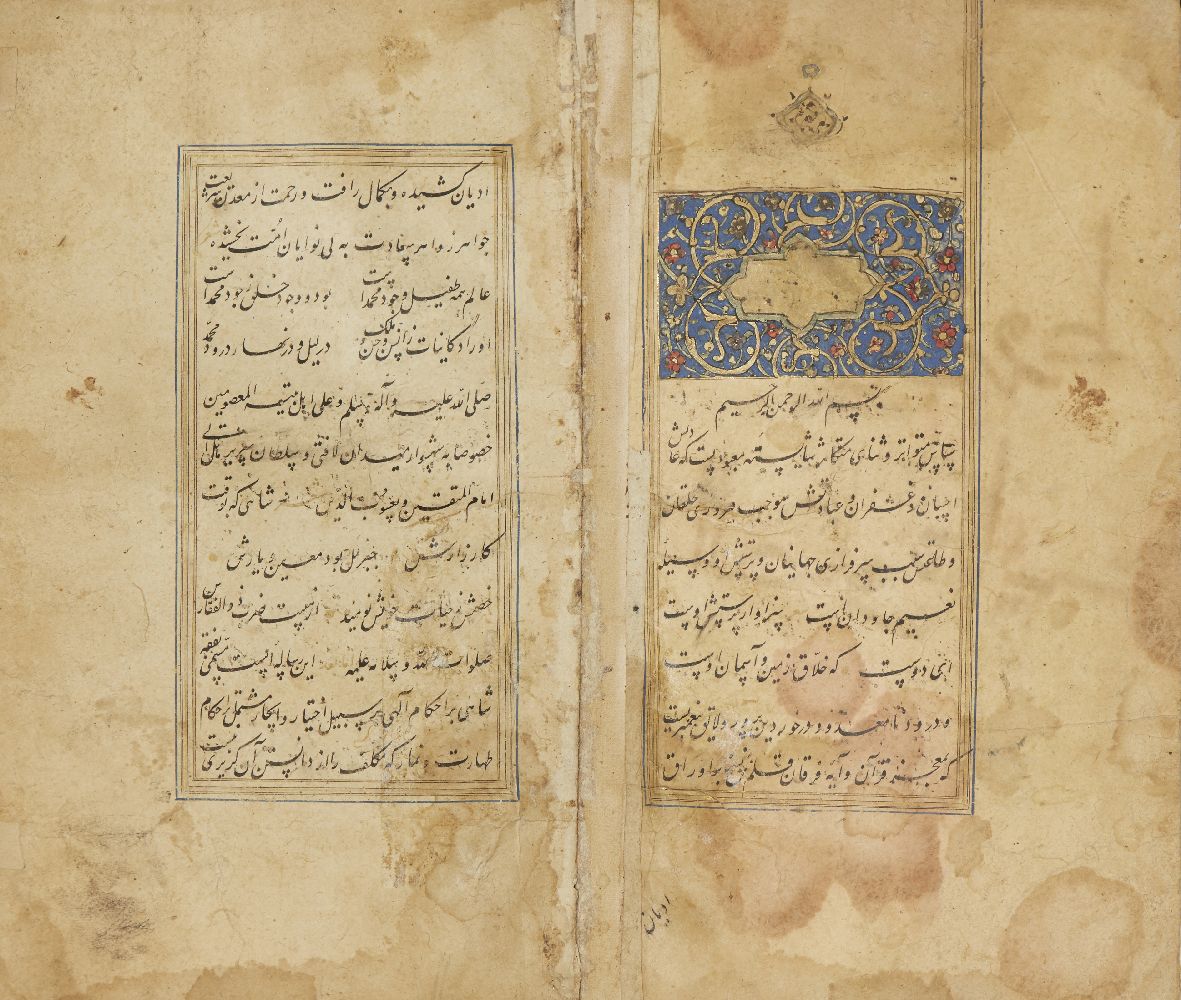 بسم الله الرحمن الرحیم
سپاس متواتر و ثنای متکاثر شایسته معبودیست که دانش
احسان و غفران و عبادتش موجب سروری خلقان
و طاعتش سبب سرفرازی جهانیان و پرستش او وسیله
نعیم جاودان است سزاوار پرستش اوست
که خلاق زمین و آسمان اوست
و درود نامعدود در خور دین پرور ولایق پیغمبریست
که معجز قرآن و آیه فرقان قلم نسخ بر اوراق
ادیان
ادیان کشیده و بکمال رافت و رحمت از معدن شریعت
جواهر زواهر سعادت به بی نوایان امت بخشیده
عالم همه طفیل وجود محمد است بود و وجود خلق ز جود محمد است
اوراد کاینات ز انس و جن و ملک در لیل و در نهار درود محمد
صلی الله علیه و آله و سلم و علی المعصومین
خصوصا به شهسوار میدان لافتی و سلطان سریر هل اتی
امام المتقین و یعسوب الدین شاهی که بوقت
کارزارش جبریل بود معین و یارش
خصمش ز حیات خویش نومید از هیبت ضرب ذوالفقارش
صلوات الله و سلامه علیه این رساله ایست مسمی بفقه
شاهی بر احکام آلهی بر سبیل اختیار و ایجاز مشتمل بر احکام
طهارت و نماز که مکلف را از دانستن آن گزیری نیست